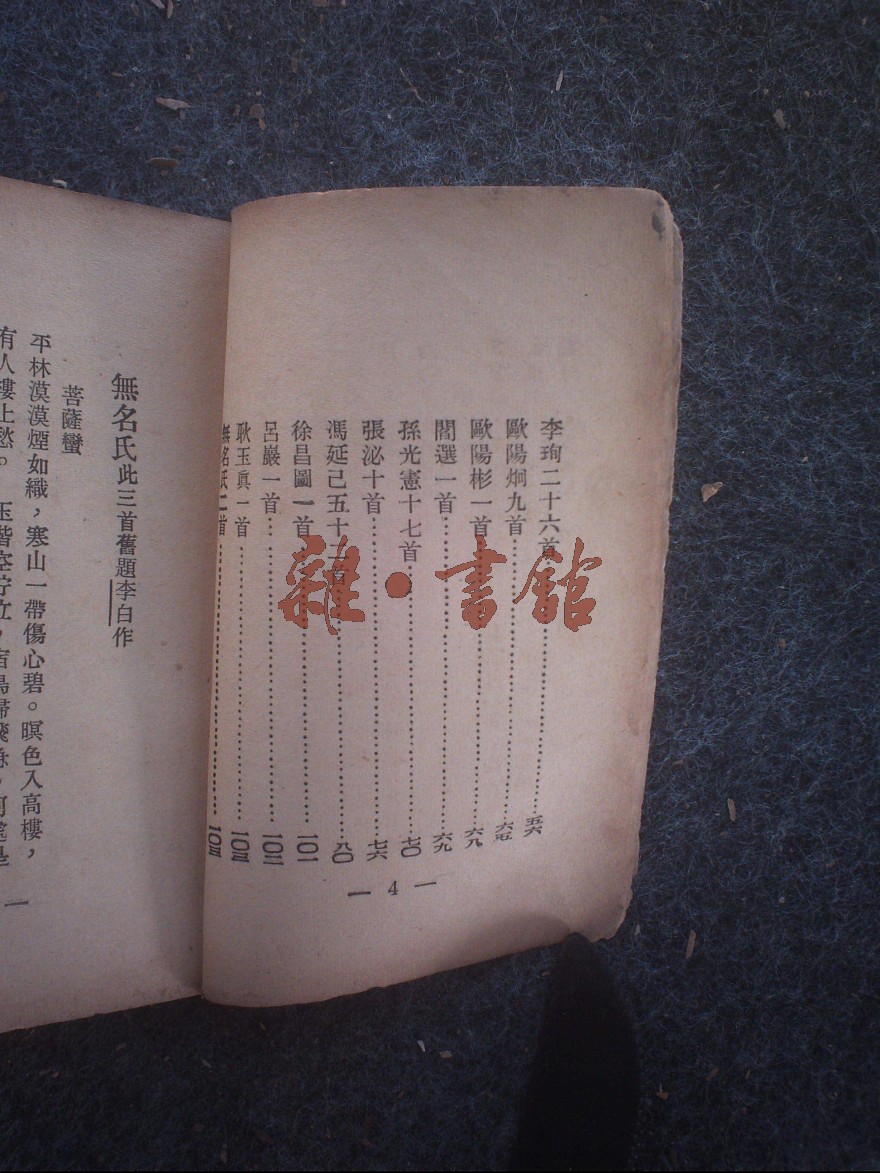 李珣二十六首……五六
歐陽炯九首……六七
歐陽彬一首……六九
閻選一首……六九
孫光憲十七首……七〇
張泌十首……七六
馮延己五十二首……八〇
徐昌圖一首……一〇一
呂巖一首……一〇二
耿玉眞一首……一〇三
無名氏二首……一〇三
— 4 —
雜·書館
無名氏此三首舊題李白作
菩薩蠻
平林漠漠煙如織，寒山一帶傷心碧。暝色入高樓，
有人樓上愁。　玉階空佇立，宿鳥歸飛急。何處是